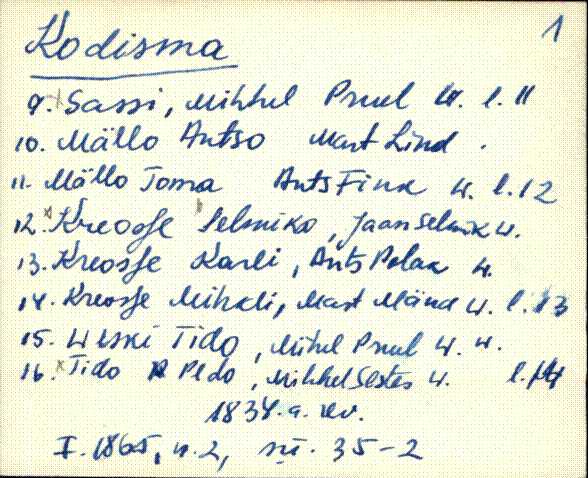 1
Kodisma
9. Sassi, Mihkel Pruul W. l. 11
10. Mällo Antso Mart Lind.
11. Mällo Toma Ants Fink W. l. 12
12. Kreosse Selmiko, Jaan Selmik W.
13. Kreosse Karli, Ants Polak W.
14. Kreosse Mihkli, Mart Mänd W. l. 13
15. Uski Tido, Mihel Pruul W. W.
16. Tido Pedo, Mihhel Sestes W. l. 14
1834. a. rev.
I. 1865, n. 2, nü. 35-2